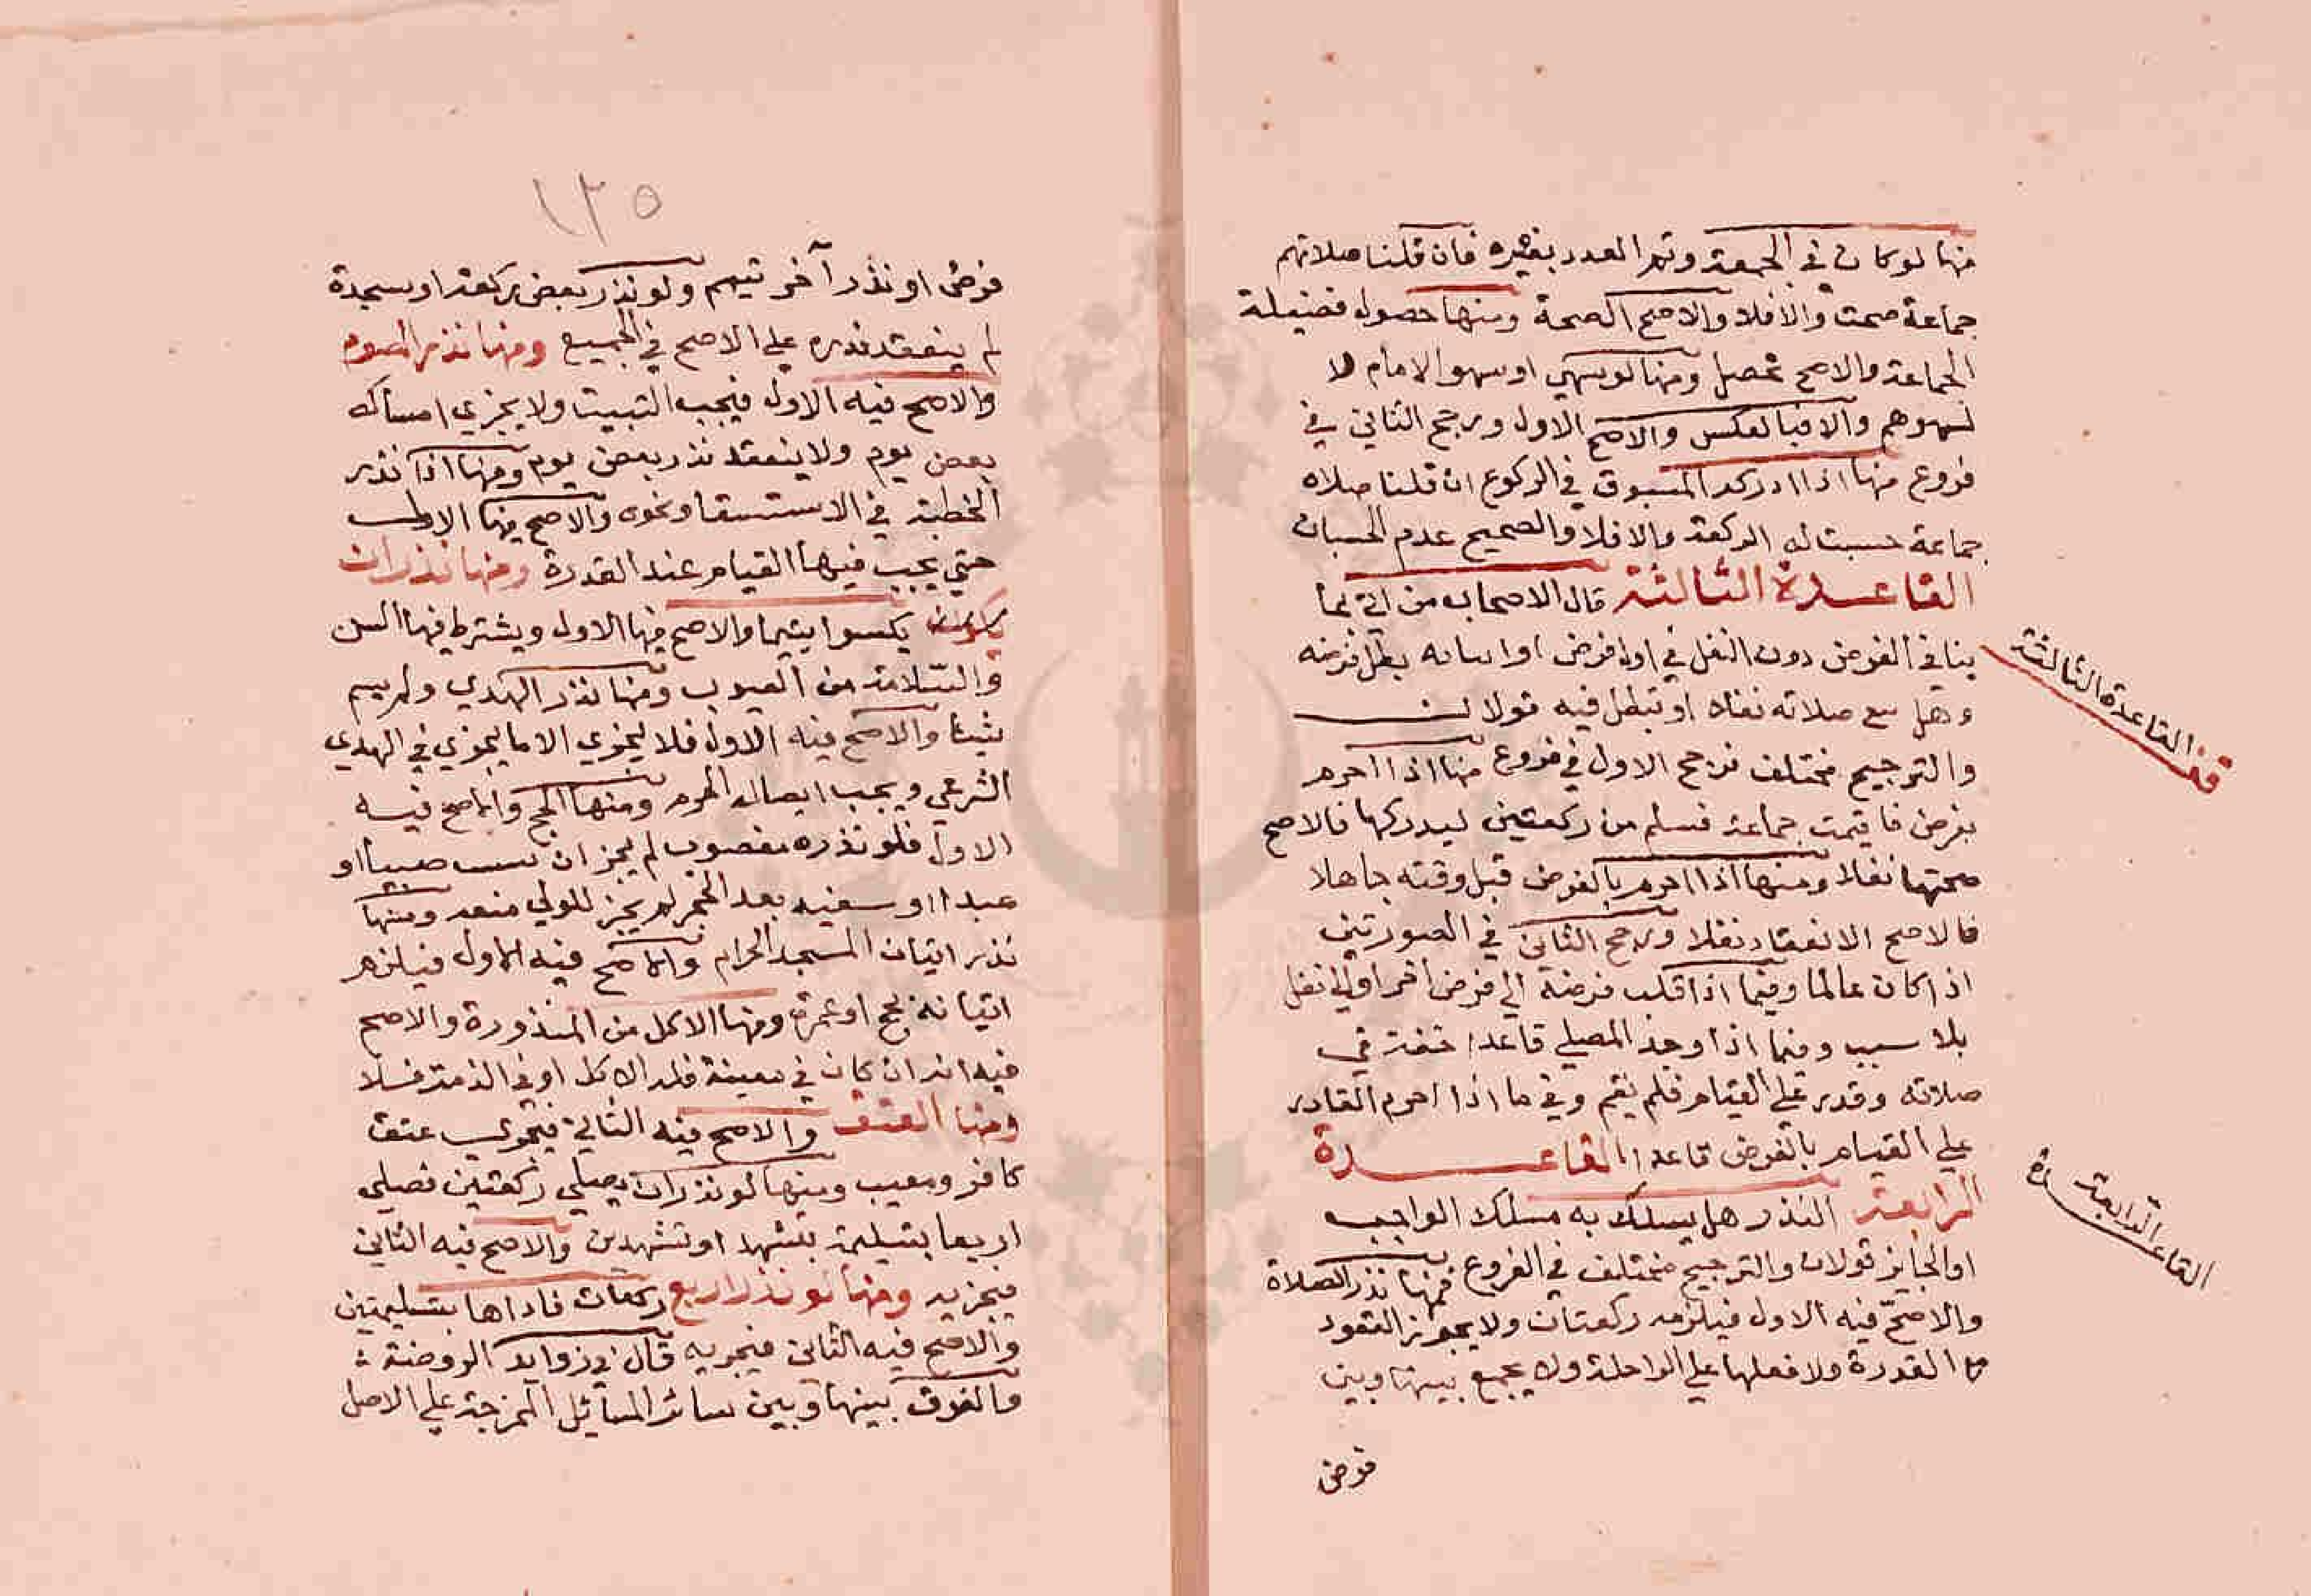 منها لو كان في الجمعة وتم العدد بغيره فان قلنا صلاتهم
جماعة صحت والا فلا والاصح الصحة ومنها حصول فضيلة
الجماعة والاصح تحصل ومنها لو سهى او سهو الامام لا
لسهوهم والا فبالعكس والاصح الاول ورجح الثاني في
فروع منها اذا ادرك المسبوق في الركوع ان قلنا صلاه
جماعة حسبت له الركعة والا فلا والصحيح عدم الحسبان
القاعدة الثالثة قال الاصحاب من اتى بما
ينافي الفرض دون النفل في اول فرض او اثنائه بطل فرضه
وهل تبقى صلاته نفلا او تبطل فيه قولان
والترجيح مختلف فرجح الاول في فروع منها اذا احرم
بفرض فاقيمت جماعة فسلم من ركعتين ليدركها فالاصح
صحتها نفلا ومنها اذا احرم بالفرض قبل وقته جاهلا
فالاصح الانعقاد نفلا ورجح الثاني في الصورتين
اذا كان عالما وفيما اذا قلب فرضه الى فرض اخر او الى نفل
بلا سبب وفيما اذا وجد المصلي قاعدا خفة في
صلاته وقدر على القيام فلم يقم وفي ما اذا احرم القادر
على القيام بالفرض قاعدا القاعدة
الرابعة النذر هل يسلك به مسلك الواجب
او الجايز قولان والترجيح مختلف في الفروع فمنها نذر الصلاة
والاصح فيه الاول فيلزمه ركعتان ولا يجوز القعود
مع القدرة ولا فعلها على الراحلة ولا يجمع بينها وبين
فرض
قف القاعدة الثالثة
القاعدة الرابعة
١٣٥
فرض او نذر آخر تيمم ولو نذر بعض ركعة او سجدة
لم ينعقد نذره على الاصح في الجميع ومنها نذر الصوم
والاصح فيه الاول فيجب التبييت ولا يجزي امساك
بعض يوم ولا ينعقد نذر بعض يوم ومنها اذا نذر
الخطبة في الاستسقا ونحوه والاصح فيها الاول
حتى يجب فيها القيام عند القدرة ومنها نذر ان
يكسوا يتيما والاصح فيها الاول ويشترط فيها السن
والسلامة من العيوب ومنها نذر الهدي ولم يسم
شيئا والاصح فيه الاول فلا يجزي الا ما يجزي في الهدي
الشرعي ويجب ايصاله الحرم ومنها الحج والاصح فيه
الاول فلو نذره معضوب لم يجز ان يستنيب صبيا او
عبدا او سفيه بعد الحجر لم يجز للولي منعه ومنها
نذر اتيان المسجد الحرام والاصح فيه الاول فيلزمه
اتيانه بحج او عمرة ومنها الاكل من المنذورة والاصح
فيه انه ان كان في معينة فله الاكل او في الذمة فلا
ومنها العتق والاصح فيه الثاني فيجزي عتق
كافر ومعيب ومنها لو نذر ان يصلي ركعتين فصلى
اربعا بتسليمة بتشهد او تشهدين والاصح فيه الثاني
فيجزيه ومنها لو نذر اربع ركعات فاداها بتسليمتين
والاصح فيه الثاني فيجزيه قال في زوايد الروضة
والفرق بينها وبين سائر المسائل المخرجة على الاصل